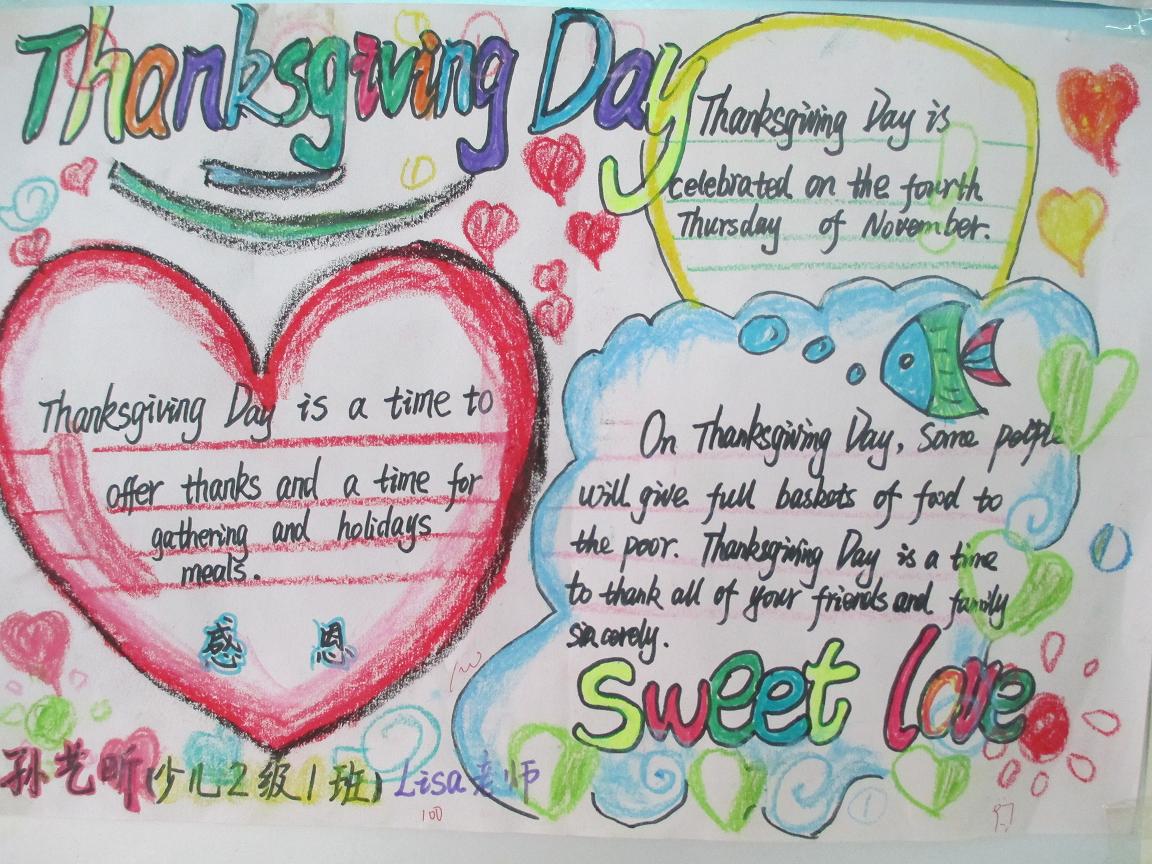 Thanksgiving Day
Thanksgiving Day is
celebrated on the fourth
Thursday of November.
Thanksgiving Day is a time to
offer thanks and a time for
gathering and holidays
meals.
感 恩
On Thanksgiving Day, some people
will give full baskets of food to
the poor. Thanksgiving Day is a time
to thank all of your friends and family
sincerely.
sweet love
孙艺昕(少儿2级1班) Lisa老师
100